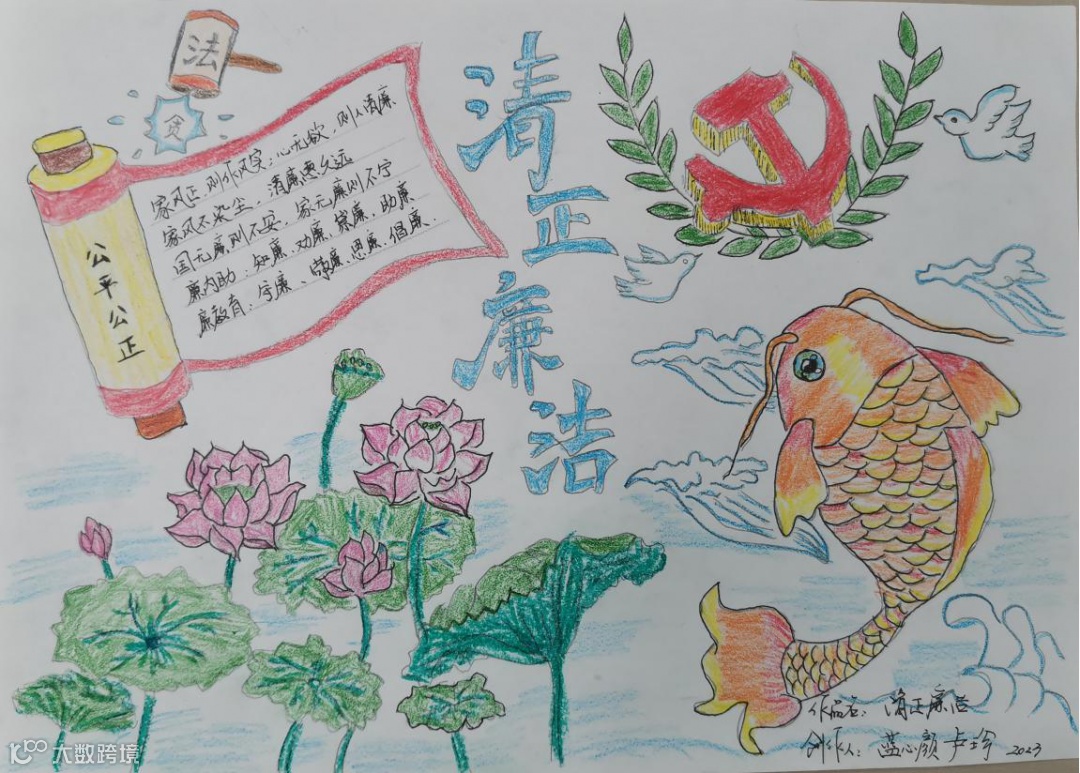 法
贪
清正廉洁
公平公正
家风正,则作风实;心无欲,则人清廉
家风不染尘,清廉惠久远
国无廉则不安,家无廉则不宁
廉内助:知廉、劝廉、家廉、助廉
廉教育:守廉、崇廉、思廉、倡廉
作品名:清正廉洁
创作人:蓝心颜 卢
2023
大数跨境